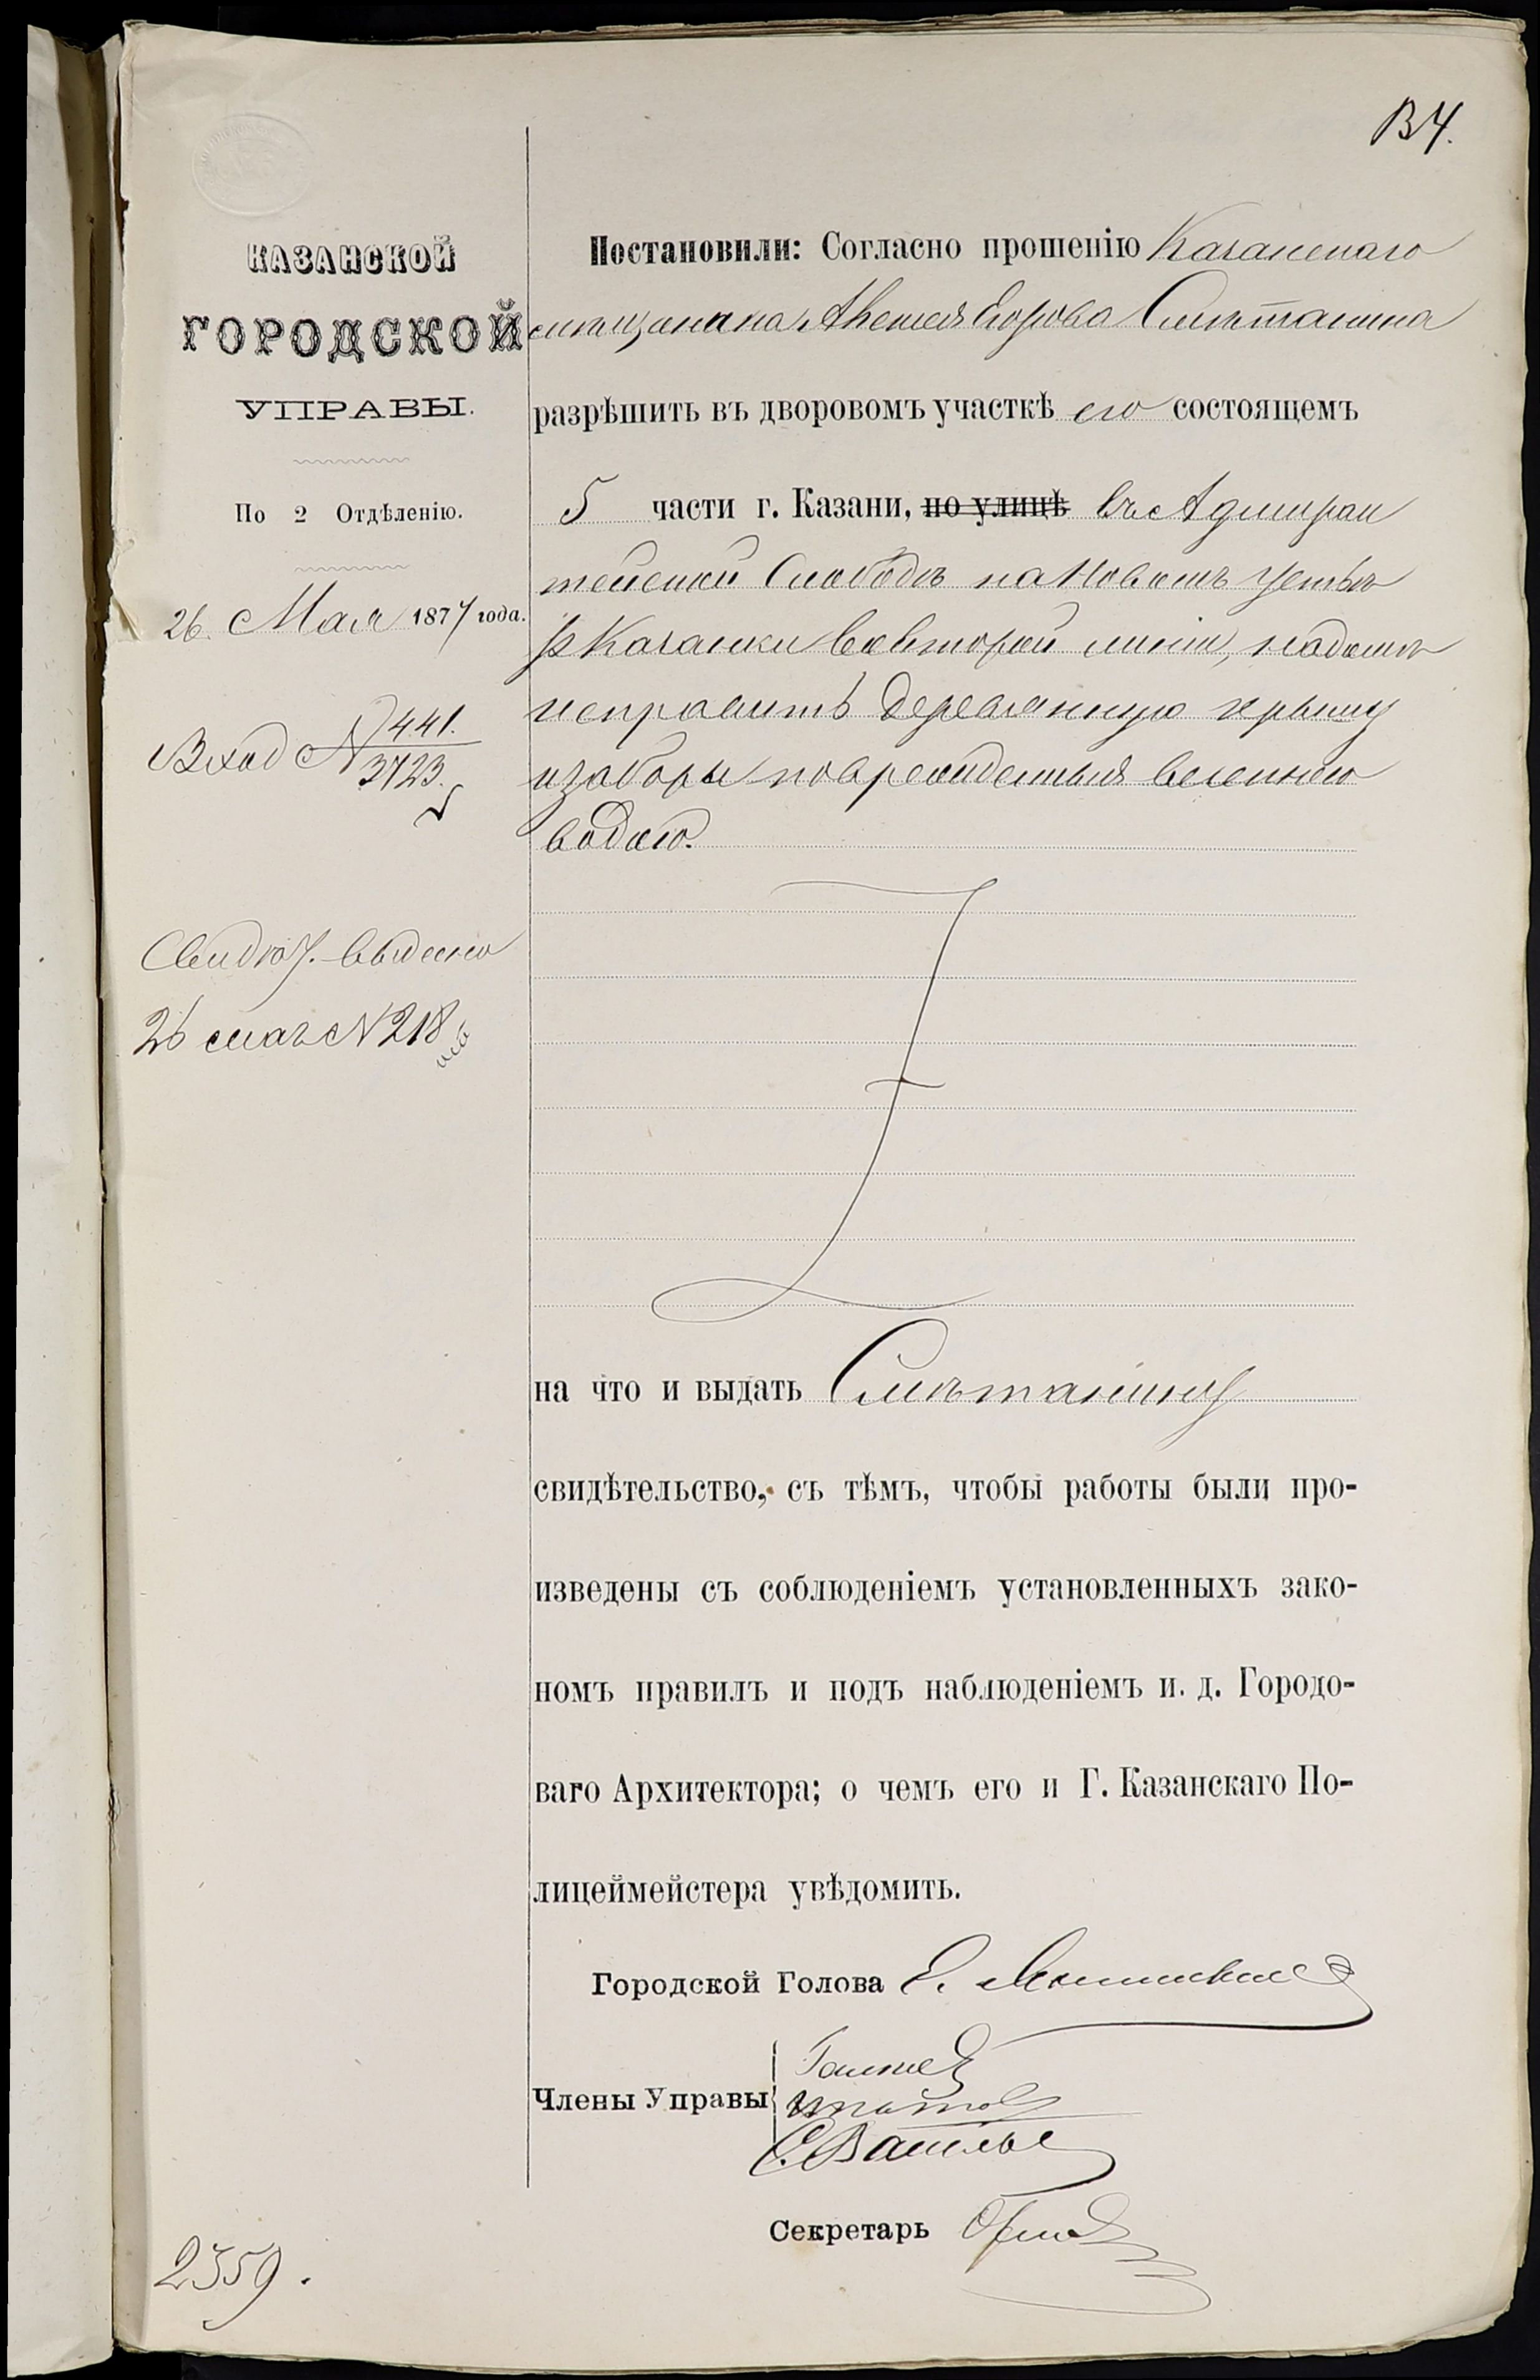 В4.
КАЗАНСКОЙ
ГОРОДСКОЙ
УПРАВЫ.
По 2 Отдѣленію.
26 Мая 1877 года.
Вход № 441.
3723.
Свидѣт. выдано
26 мая № 218
2359.
Постановили: Согласно прошенію Казанскаго
мѣщанина Алексея Егорова Смѣтанина
разрѣшить въ дворовомъ участкѣ его состоящемъ
5 части г. Казани, по улицѣ въ Адмирал
тейской Слободѣ на Новомъ Устьѣ
р Казанки во второй линіи,
исправить деревянную крышу
и заборы поврежденныя весеннею
водою.
на что и выдать Смѣтанину
свидѣтельство, съ тѣмъ, чтобы работы были про-
изведены съ соблюденіемъ установленныхъ зако-
номъ правилъ и подъ наблюденіемъ и. д. Городо-
ваго Архитектора; о чемъ его и Г. Казанскаго По-
лицеймейстера увѣдомить.
Городской Голова
Члены Управы
Секретарь